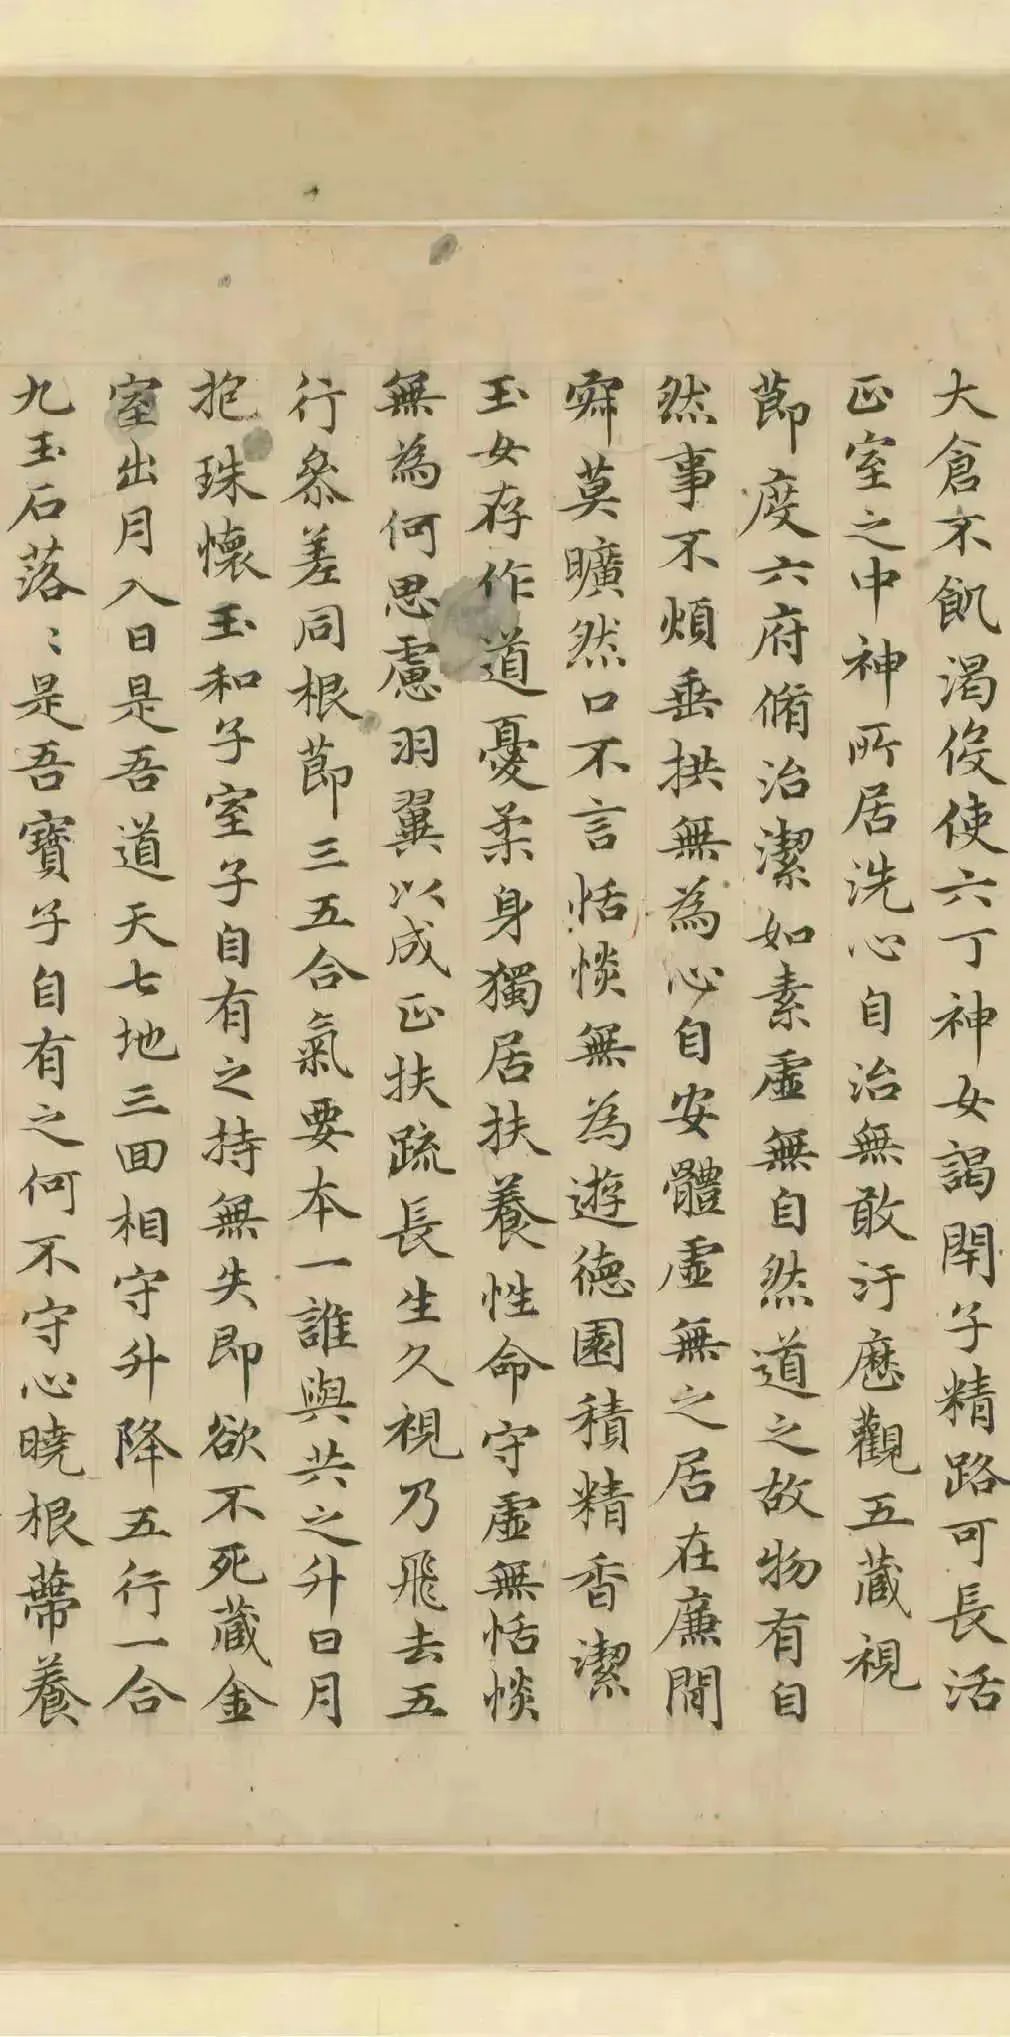 大倉不飢渴役使六丁神女謁閇子精路可長活
正室之中神所居洗心自治無敢汙歷觀五藏視
節度六府脩治潔如素虛無自然道之故物有自
然事不煩垂拱無為心自安體虛無之居在廉間
𡨋莫曠然口不言恬惔無為遊德園積精香潔
玉女存作道憂柔身獨居扶養性命守虛無恬惔
無為何思慮羽翼以成正扶疏長生久視乃飛去五
行叅差同根節三五合氣要本一誰與共之升日月
抱珠懷玉和子室子自有之持無失即欲不死藏金
室出月入日是吾道天七地三回相守升降五行一合
九玉石落〻是吾寶子自有之何不守心曉根蔕養